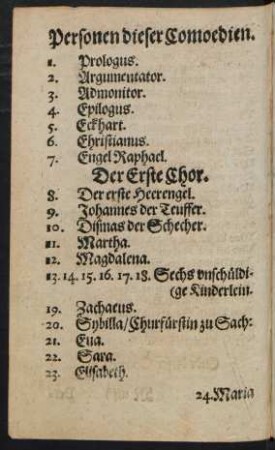 Personen dieser Comoedien.
1. Prologus.
2. Argumentator.
3. Admonitor.
4. Epilogus.
5. Eckhart.
6. Christianus.
7. Engel Raphael.
Der Erste Chor.
8. Der erste Heerengel.
9. Johannes der Teuffer.
10. Dismas der Schecher.
11. Martha.
12. Magdalena.
13. 14. 15. 16. 17. 18. Sechs vnschüldi-
(ge Kinderlein.
19. Zachaeus.
20. Sybilla / Churfürstin zu Sach:
21. Eua.
22. Sara.
23. Elisabeth.
24. Maria